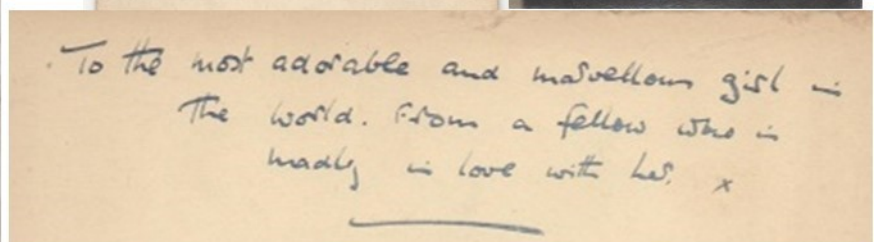 To the most adorable and marvellous girl in
the world. From a fellow who is
madly in love with her. x